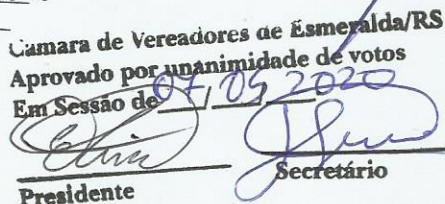 Camara de Vereadores de Esmeralda/RS
Aprovado por unanimidade de votos
Em Sessão de 07/05/2020
Presidente
Secretário